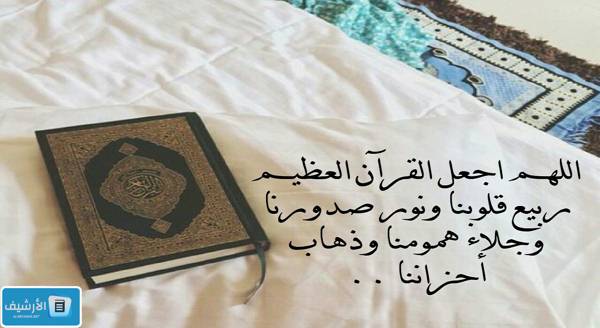 اللهم اجعل القرآن العظيم
ربيع قلوبنا ونور صدورنا
وجلاء همومنا وذهاب
أحزاننا . .
الأرشيف